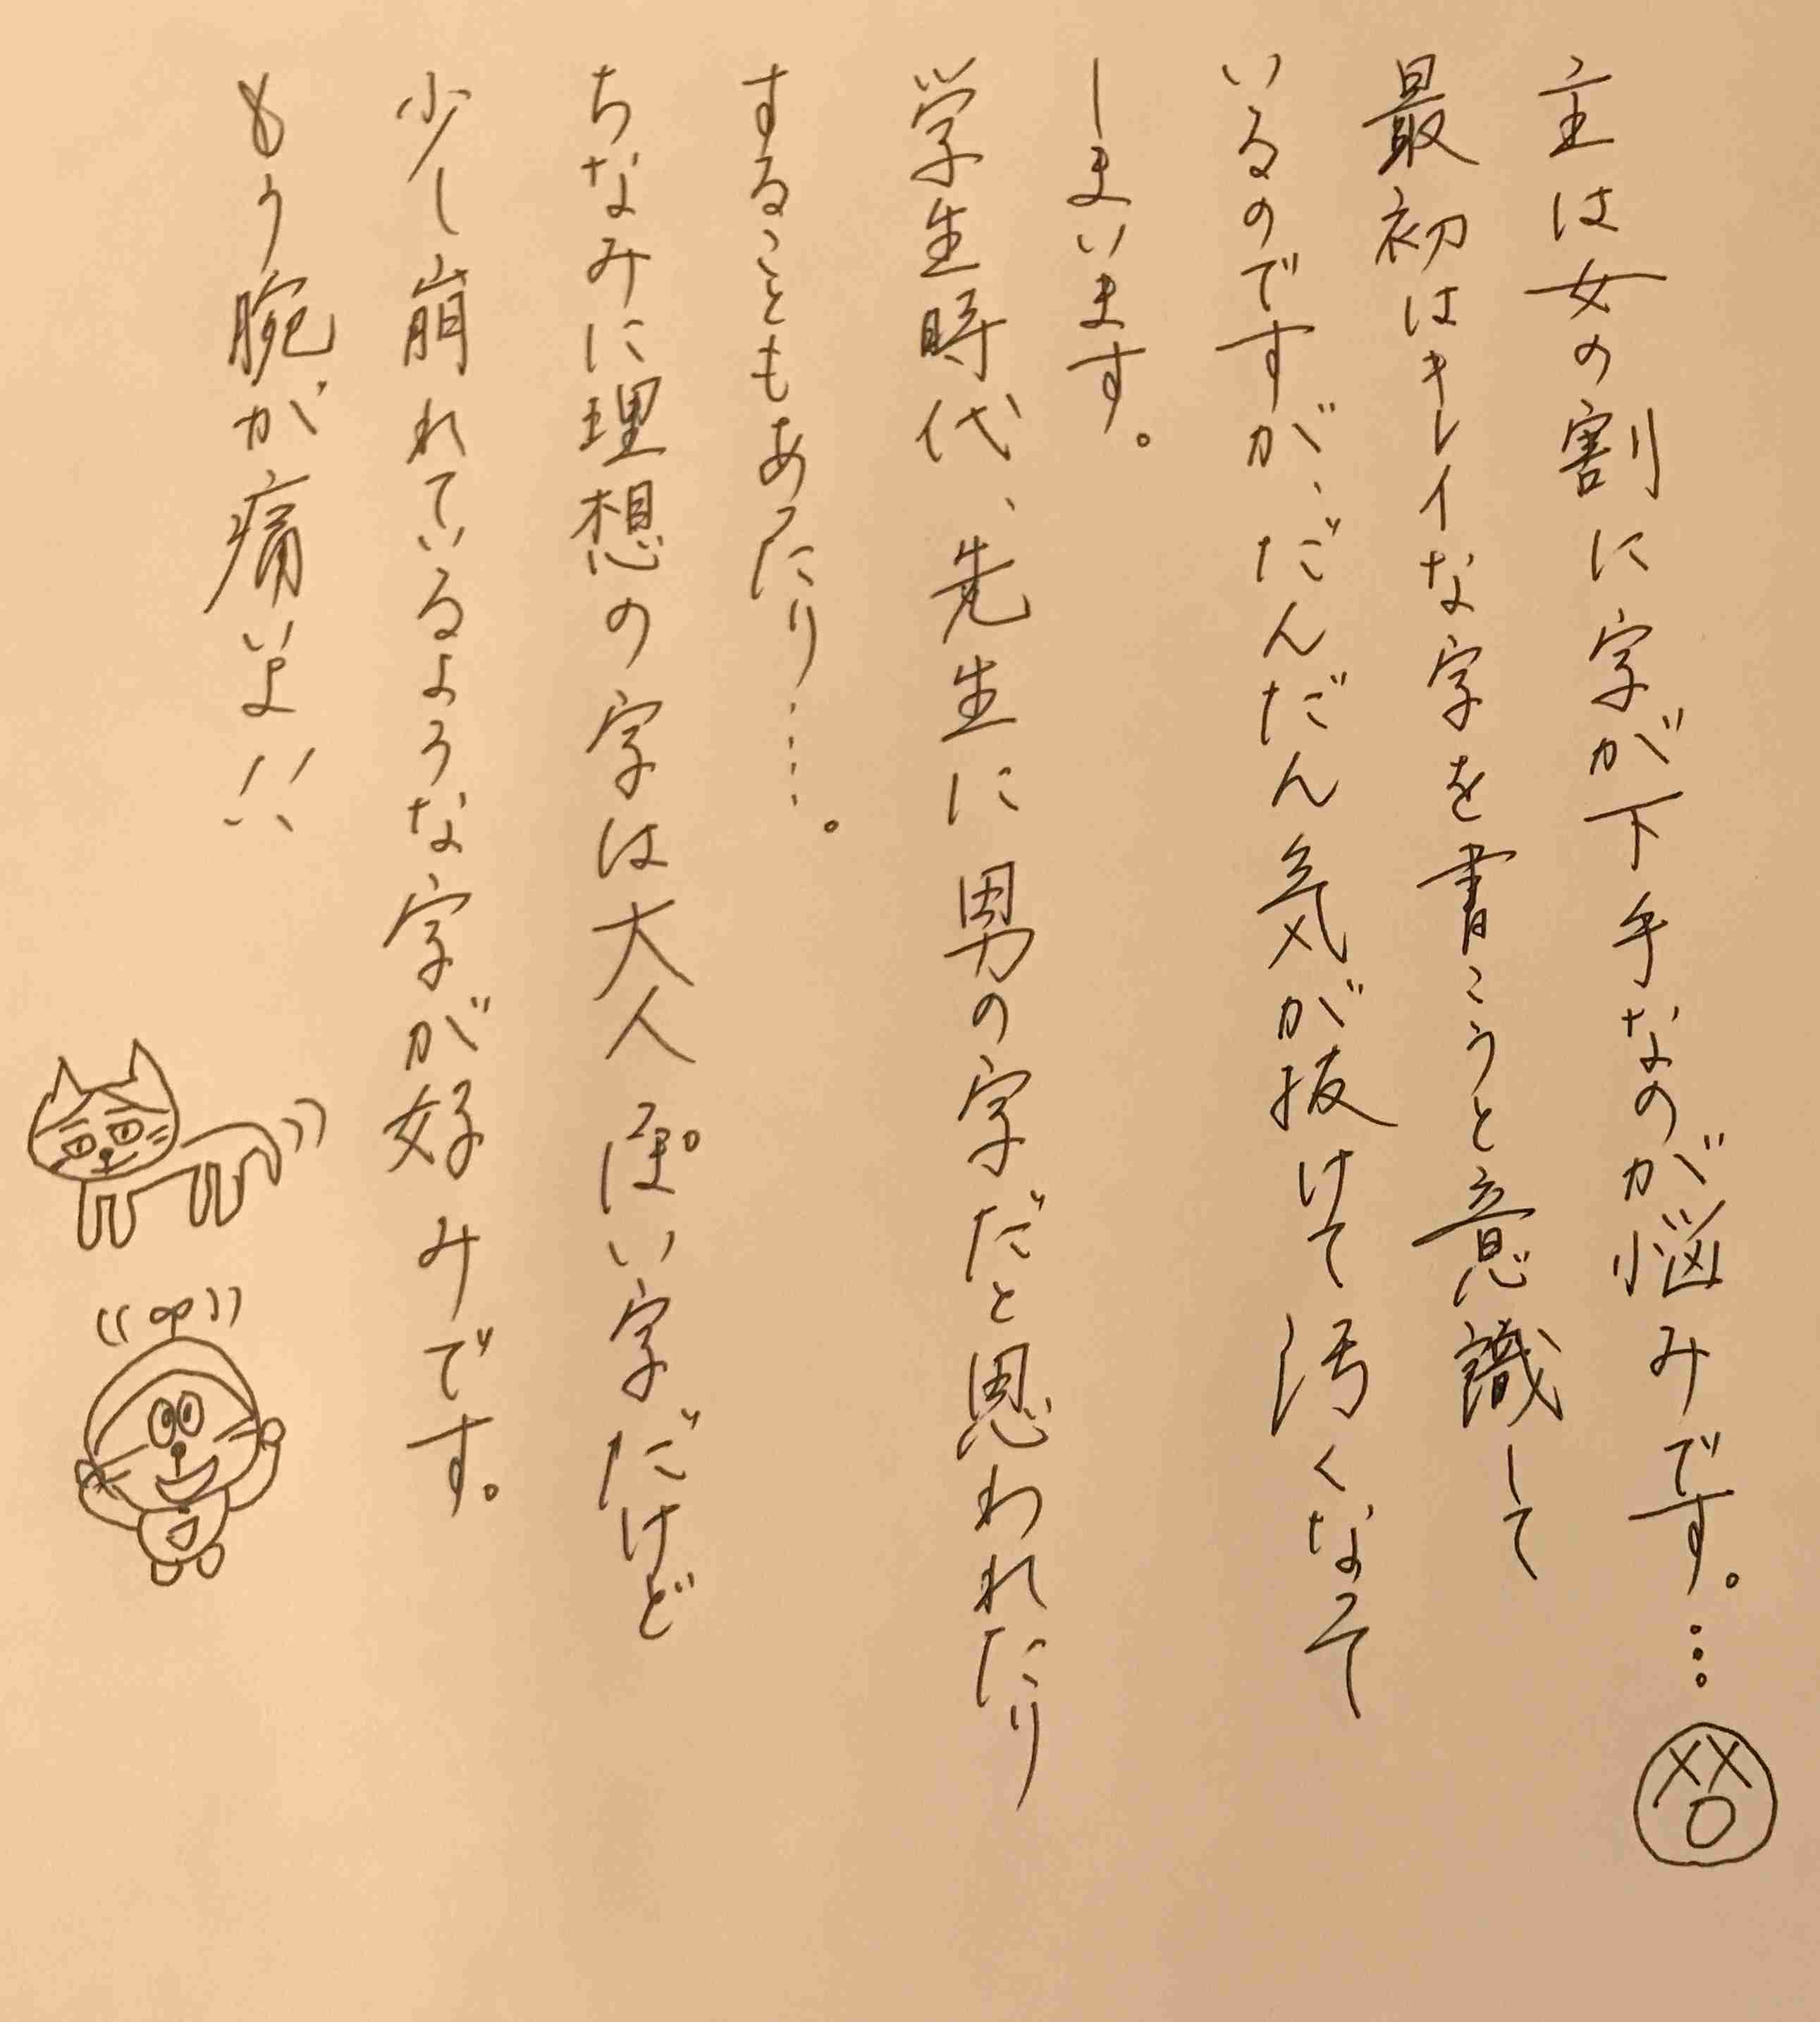 主は女の割に字が下手なのが悩みです。…
最初はキレイな字を書こうと意識して
いるのですが、だんだん気が抜けて汚くなって
しまいます。
学生時代、先生に男の字だと思われたり
することもあったり……。
ちなみに理想の字は大人っぽい字だけど
少し崩れているような字が好みです。
もう腕が痛いよ!!